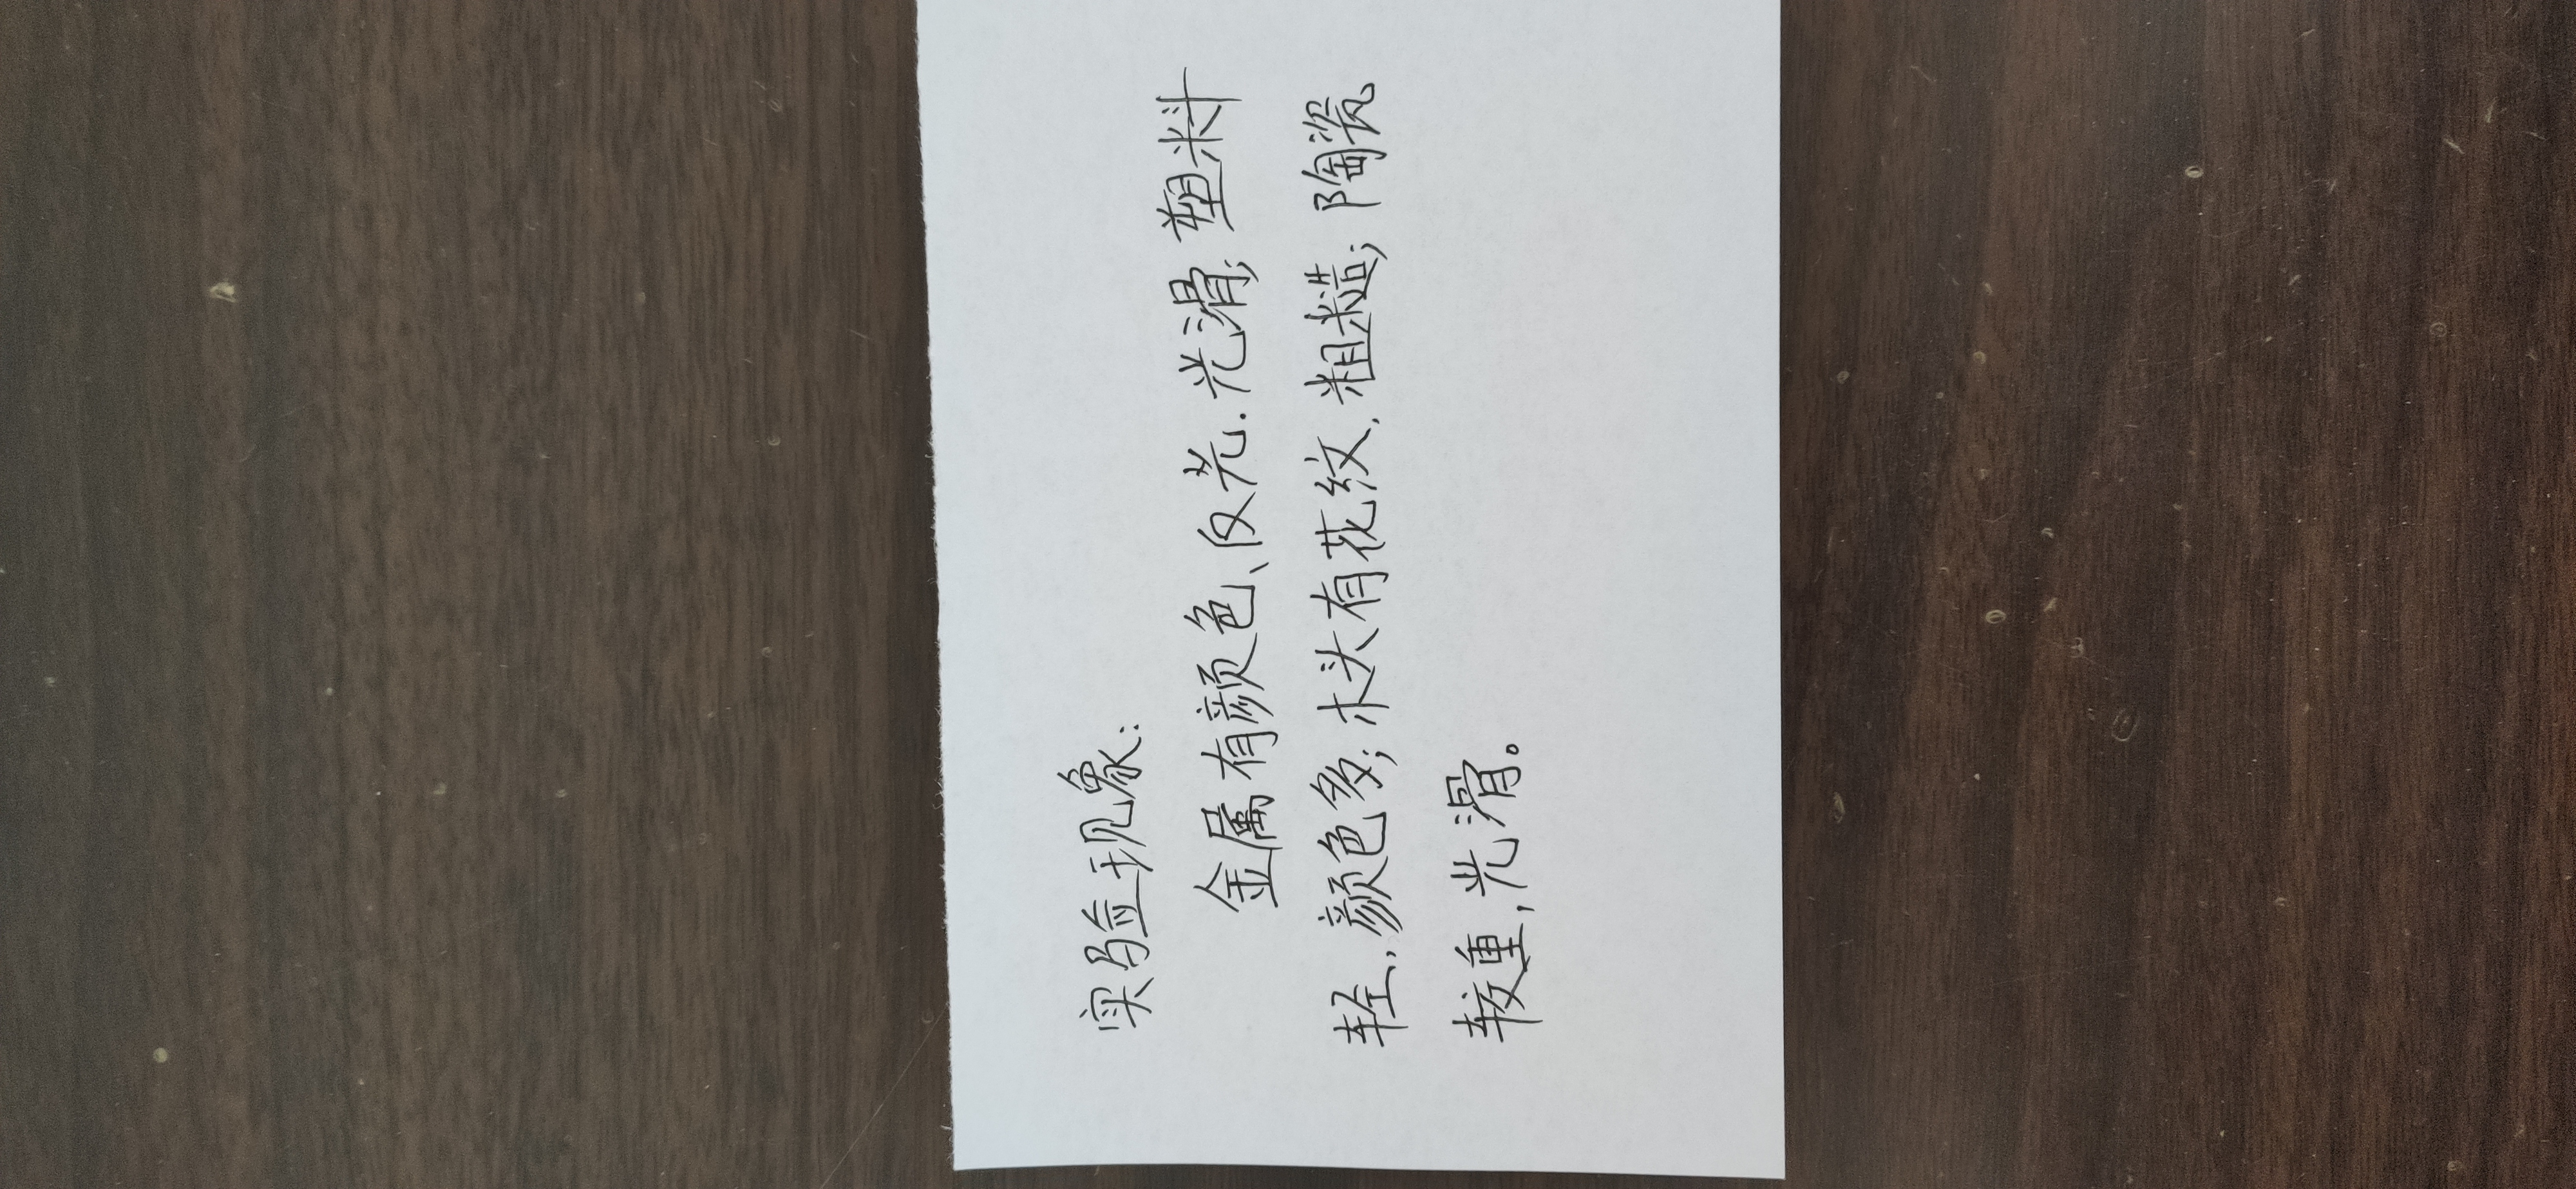 实验现象:
金属有颜色、反光、光滑;塑料
轻、颜色多;木头有花纹、粗糙;陶瓷
较重,光滑。